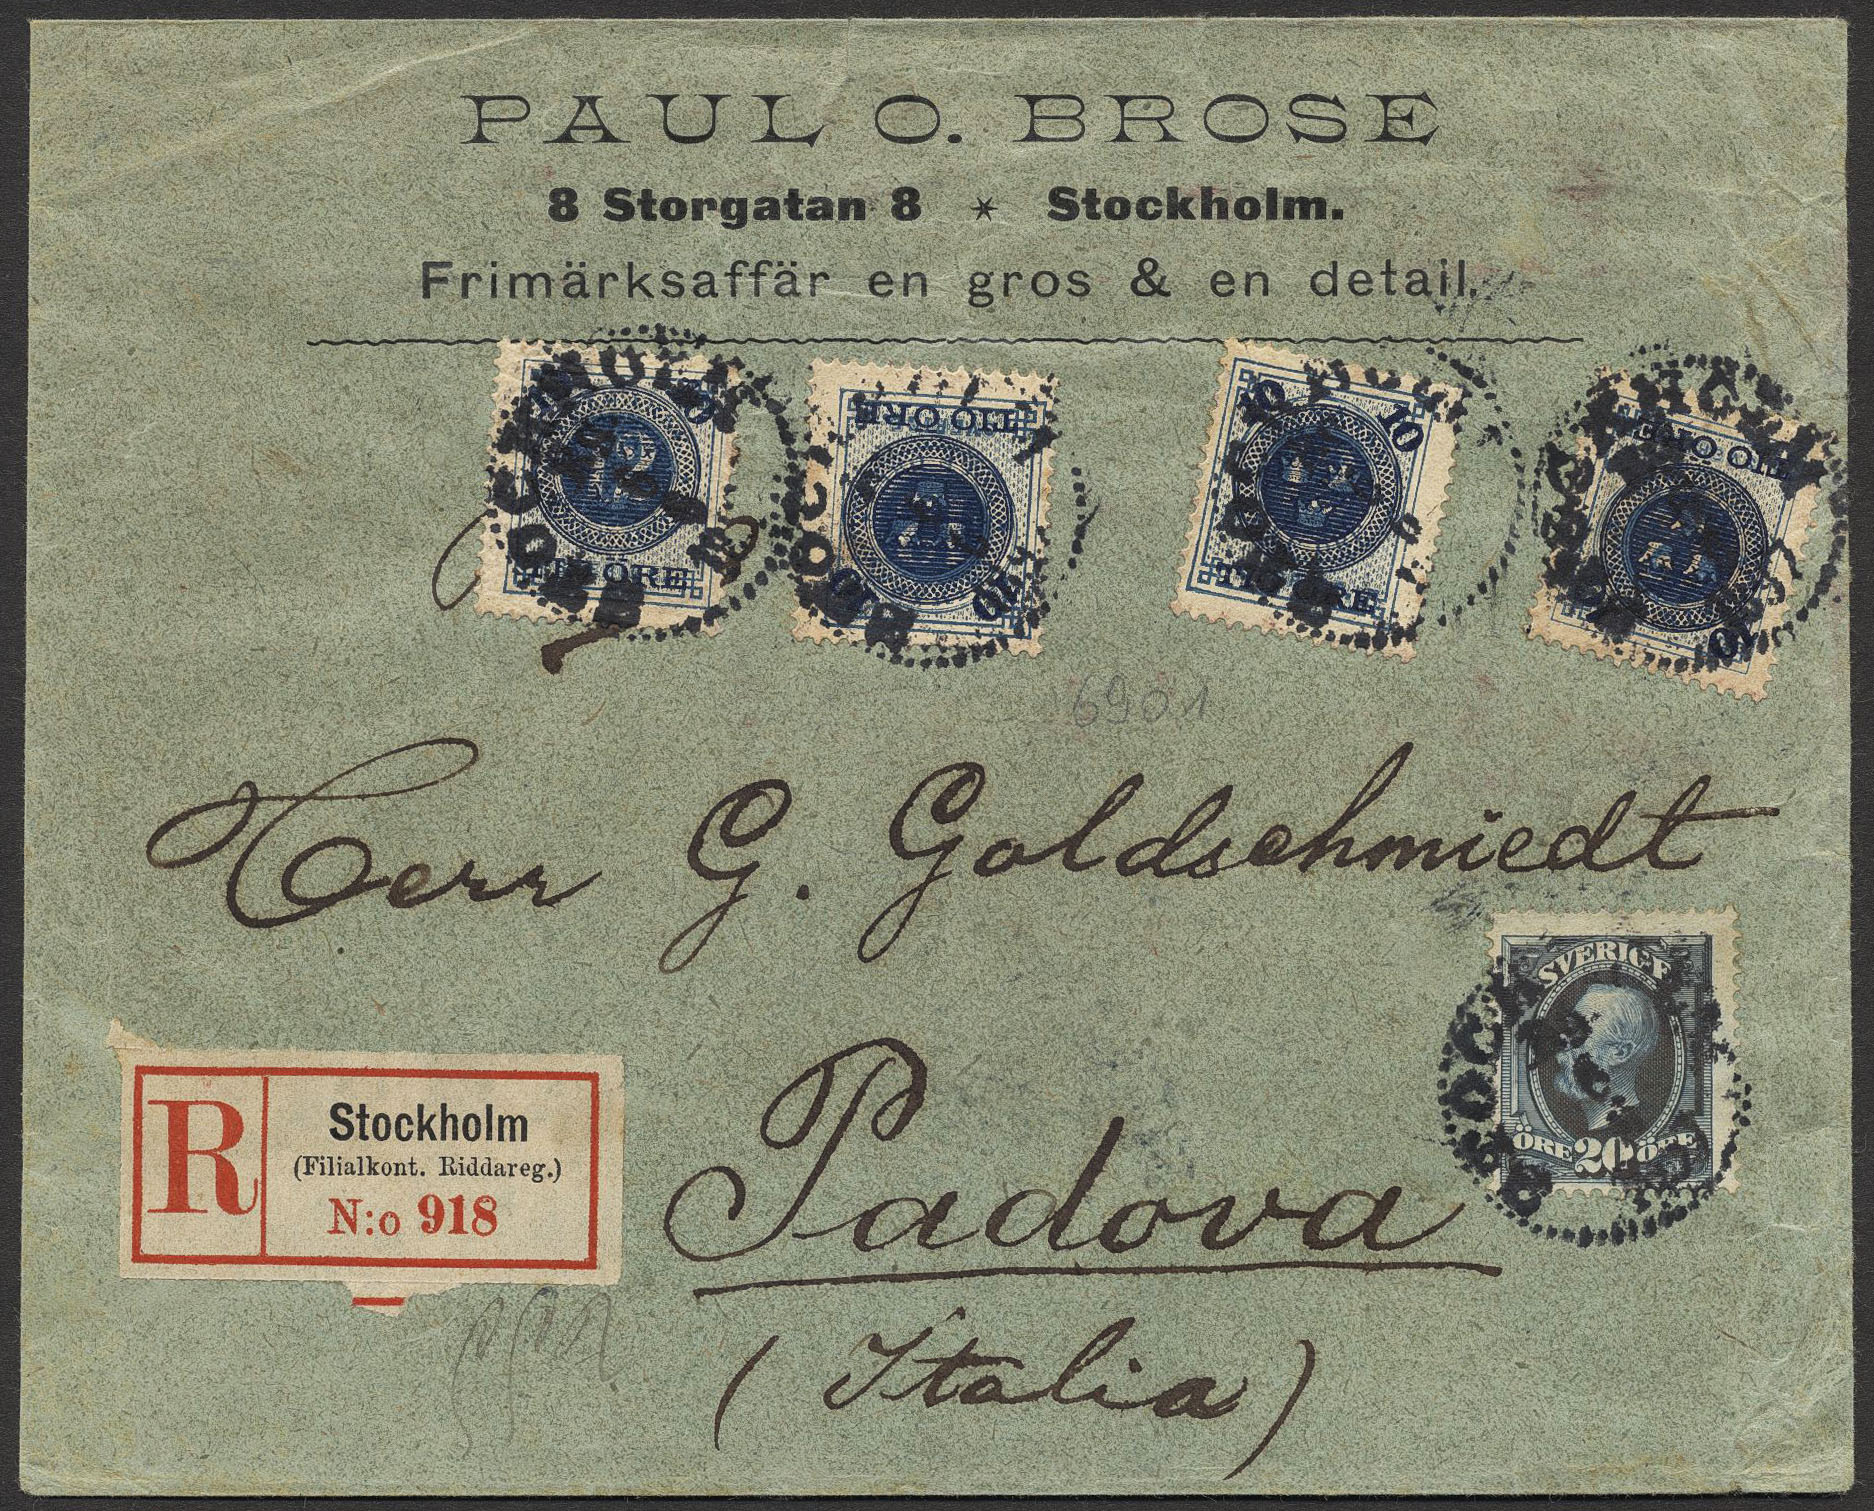 PAUL O. BROSE
8 Storgatan 8 * Stockholm.
Frimärksaffär en gros & en detail.
10
TIO ÖRE
TIO ÖRE
10
10 10
TIO ÖRE
TIO ÖRE
10
6901
Herr G. Goldschmiedt
SVERIGE
ÖRE 20 ÖRE
R
Stockholm
(Filialkont. Riddareg.)
N:o 918
Padova
(Italia)